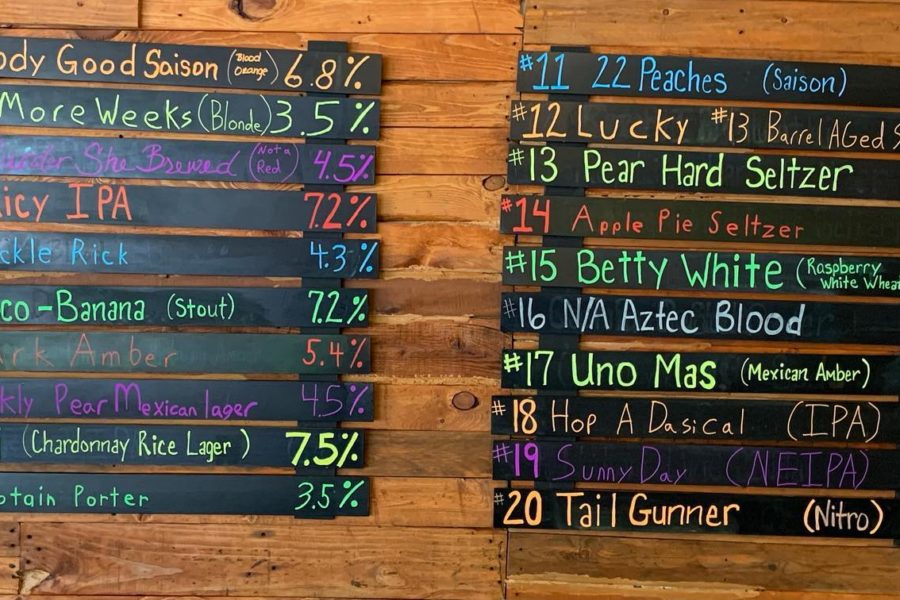 ody Good Saison (Blood Orange) 6.8%
More Weeks (Blonde) 3.5%
She Brewed (Not a Red) 4.5%
icy IPA 7.2%
ckle Rick 4.3%
co-Banana (Stout) 7.2%
rk Amber 5.4%
kly Pear Mexican lager 4.5%
(Chardonnay Rice Lager) 7.5%
ptain Porter 3.5%
#11 22 Peaches (Saison)
#12 Lucky #13 Barrel AGed S
#13 Pear Hard Seltzer
#14 Apple Pie Seltzer
#15 Betty White (Raspberry White Wheat
#16 N/A Aztec Blood
#17 Uno Mas (Mexican Amber)
#18 Hop A Dasical (IPA)
#19 Sunny Day (NEIPA)
#20 Tail Gunner (Nitro)